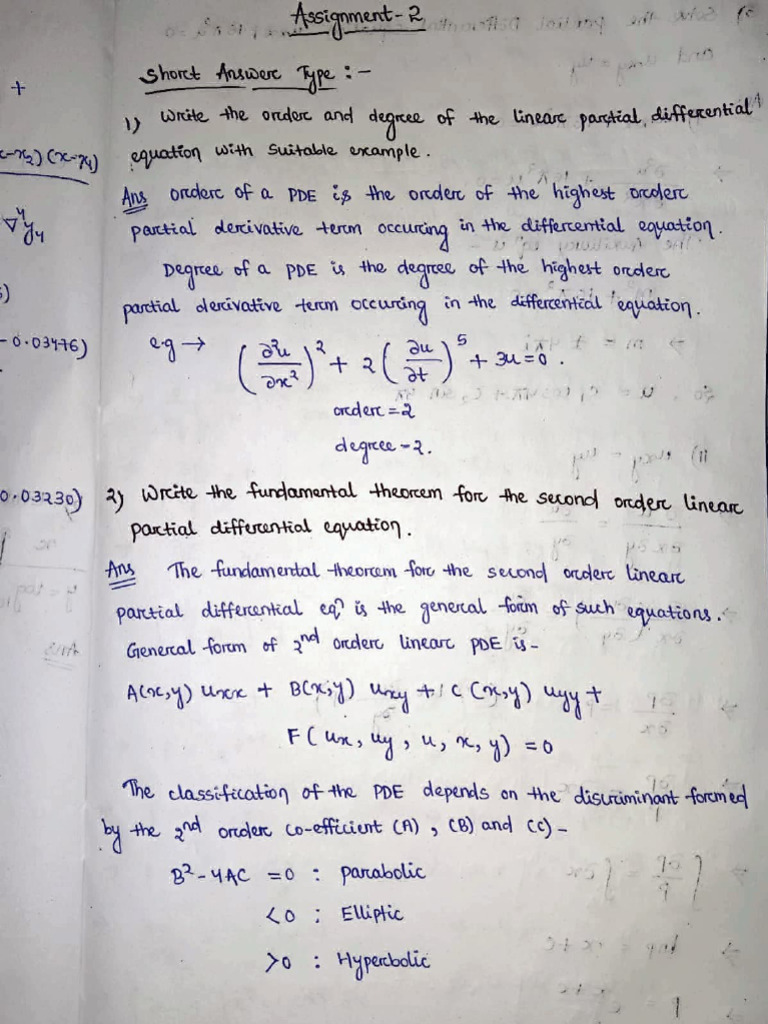 Assignment-2
Short Answer Type :-
+
1) Write the order and degree of the linear partial differential
x-x₂) (x-x₁)
equation with suitable example.
Ans order of a PDE is the order of the highest order
∇⁴y₄
partial derivative term occuring in the differential equation.
Degree of a PDE is the degree of the highest order
partial derivative term occuring in the differential equation.
-0.03476)
e.g → (∂²u/∂x²)² + 2(∂u/∂t)⁵ + 3u=0.
order = 2
degree - 2.
0.03230)
2) Write the fundamental theorem for the second order linear
partial differential equation.
Ans The fundamental theorem for the second order linear
partial differential eqⁿ is the general form of such equations.
General form of 2nd order linear PDE is -
A(x,y) uxx + B(x,y) uxy + C (x,y) uyy +
F( ux, uy, u, x, y) = 0
The classification of the PDE depends on the discriminant formed
by the 2nd order co-efficient (A), (B) and (C) -
B²-4AC = 0 : parabolic
<0 : Elliptic
>0 : Hyperbolic